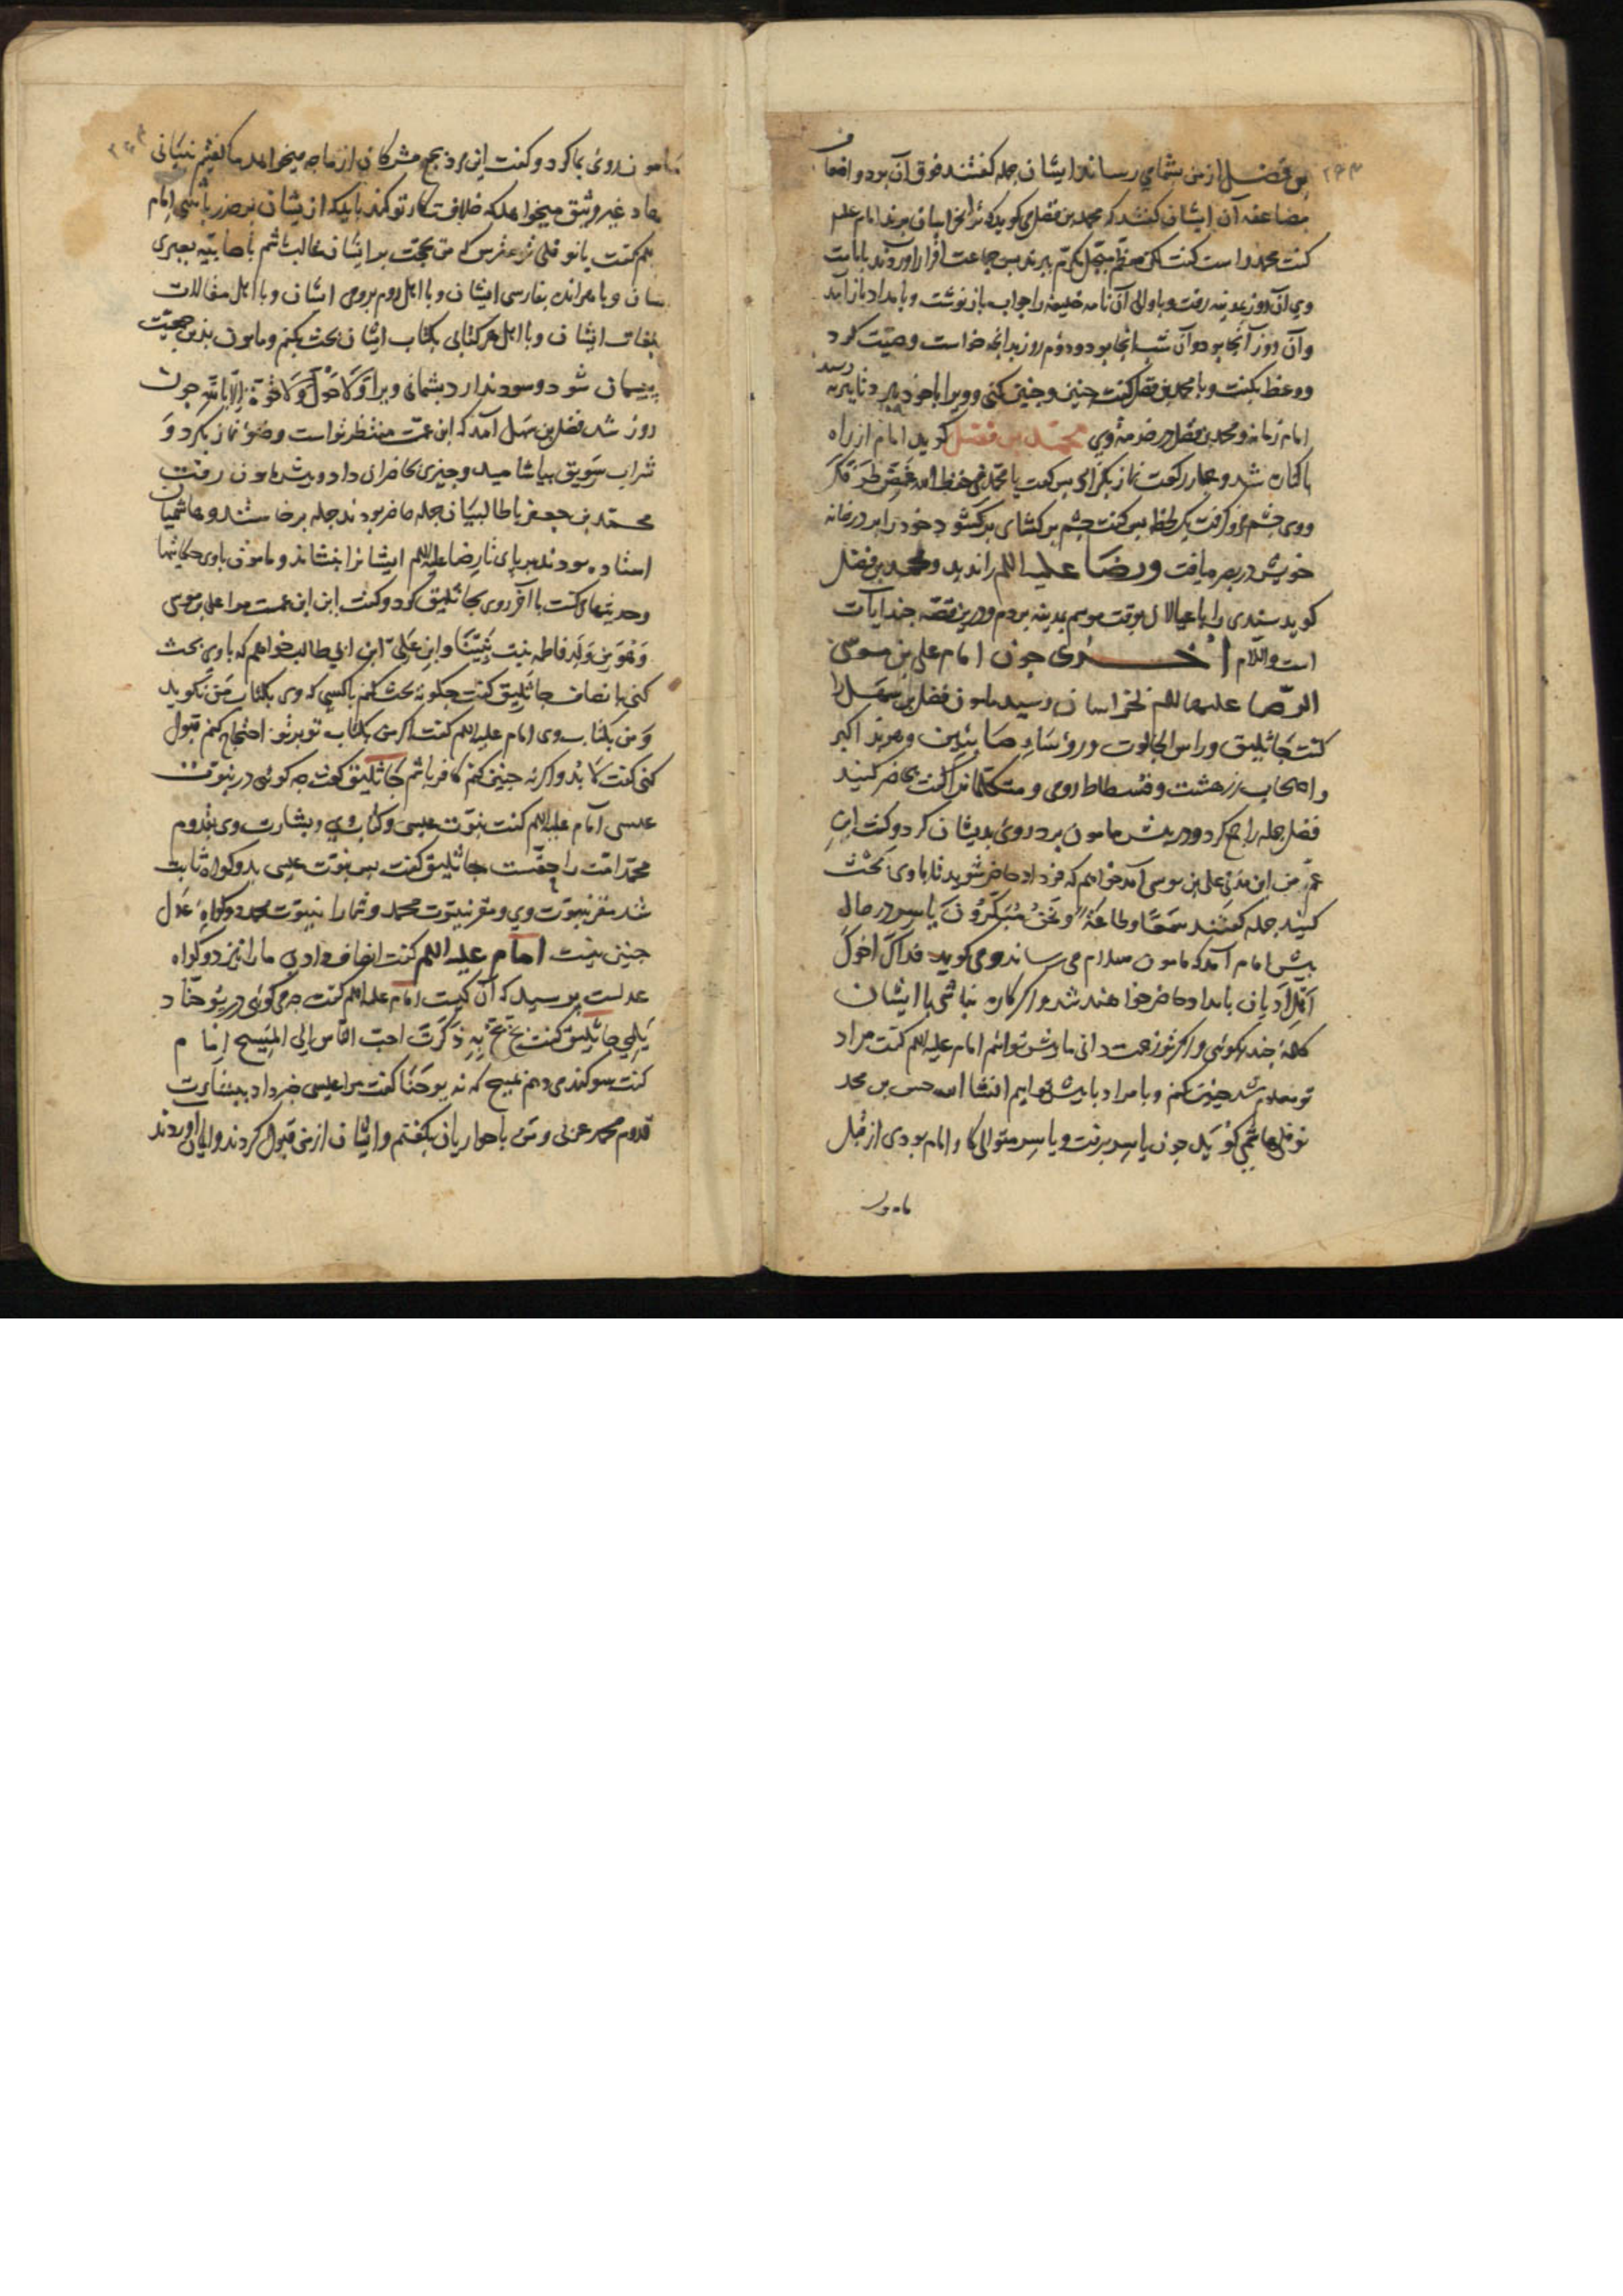 بن فضل از من بشما می رساند ایشان جمله گفتند فوق آن بود و اضعاف
مضاعفه آن ایشان گفتند که محمد بن فضل می گوید که ترا بخراسان برند امام علیه
گفت محمد راست گفت لکن معظم مبجل مکرم برند پس جماعت اقرار آوردند بامامت
وی آن روز بمدینه رفت و باوالی آن نامه خلیفه را جواب باز نوشت و بامداد باز آمد
وآن روز آنجا بود و آن شب آنجا بود و دوم روز بدانچه خواست وصیت کرد
و وعظ بگفت و با محمد بن فضل گفت چنین و چنین کنی و ویرا باخود تا بیرد
امام روانه و محمد بن فضل در خدمت وی محمد بن فضل گوید امام از راه
باکناره شد و چهار رکعت نماز بگزارد پس گفت یا محمد فی حفظ الله غمض طرفک
ووی چشم فرو گرفت یک لحظه پس گفت چشم برگشای برگشود خود را بر در خانه
خویش در بصره یافت ورضا علیه اللم را ندید و محمد بن فضل
گوید سندی را باعیالان بوقت موسم بمدینه بردم و درین قصه چند آیات
است والسلام اخـــری چون امام علی بن موسی
الرضا علیهما اللم بخراسان رسید مامون فضل بن سهل را
گفت جاثلیق وراس الجالوت ورؤساء صابئین و هربذ اکبر
واصحاب زرهشت و قسطاط رومی و متکلمانرا گفت حاضر کنید
فضل جمله را جمع کرد و در پیش مامون برد روی بدیشان کرد و گفت ابن
عم من ابن مدنی علی بن موسی آمد خواهم که فردا حاضر شوید تا باوی بحث
کنید جمله گفتند سمعا و طاعة و نحن مبکرون یاسر در حال
پیش امام آمد که مامون سلام می رساند و می گوید فداک اخوک
اهل ادیان بامداد حاضر خواهند شد و اگر کاره نباشی با ایشان
کلمه چند بگوئی و اگر تو زحمت دانی ما پیش تو آئیم امام علیه اللم گفت مراد
تو معلوم شد چنین کنم و بامداد باپیش تو آیم انشاالله حسن بن محمد
نوفلی هاشمی گوید چون یاسر برفت و یاسر متوالی کار امام بودی از قبل
مامون
مامون روی بما کرد و گفت این مرد بجمع مشرکان از ما چه میخواهد ما گفتیم
غیر وثیق میخواهد که خلافت کار تو کند باید که ازیشان برحذر باشی امام
گفت یا نوفلی من بحجت بر ایشان غالب باشم با صابئیه بعبری
ایشان و با هرابذه بفارسی ایشان و با اهل روم برومی ایشان و با اهل مقالات
بلغات ایشان و با اهل هر کتابی بکتاب ایشان بحث بکنم و مامون بدین جمعیت
پشیمان شود و سود ندارد پشمانی ویرا ولا حول ولا قوة الا بالله چون
روز شد فضل بن سهل آمد که ابن عمت منتظر تو است وضو نماز بکرد و
شراب سویق بیاشامید و چیزی حاضرانرا داد و پیش مامون رفت
محمد بن جعفر با طالبیان جمله حاضر بودند جمله برخاستند و هاشمیان
استاده بودند بر پای تا رضا علیه اللم ایشانرا بنشاند و مامون باوی حکایتها
وحدیثهای گفت باآخر روی بجاثلیق کرد و گفت این ابن عمت مرا علی بن موسی
وهو من ولد فاطمه بنت نبینا و ابن علی ابن ابی طالب خواهم که باوی بحث
کنی بانصاف جاثلیق گفت چگونه بحث کنم باکسی که وی بکتاب من نگوید
ومن بکتاب وی امام علیه اللم گفت اگر من بکتاب تو بر تو احتجاج کنم قبول
کنی گفت لابد و اگر نه چنین کنم کافر باشم جاثلیق گفت چه گوئی در نبوت
عیسی امام علیه اللم گفت نبوت عیسی و کتاب وی و بشارت وی بقدوم
محمد امت را حقست جاثلیق گفت پس نبوت عیسی بدو گواه ثابت
شد مقر نبوت وی و مقر نبوت محمد و شما را نبوت محمد دو گواه عدل
چنین نیست امام علیه اللم گفت انصاف دادی ما را نیز دو گواه
عدلست پرسید که آن کیست امام علیه اللم گفت چه می گوئی در یوحنا د
یلمی جاثلیق گفت بخ بخ به ذکرت احب الناس الی المسیح امام
گفت سوگند می دهم بمسیح که نه یوحنا گفت مرا عیسی خبر داد ببشارت
قدوم محمد عربی و من باحواریان بگفتم و ایشان از من قبول کردند و ایمان آوردند